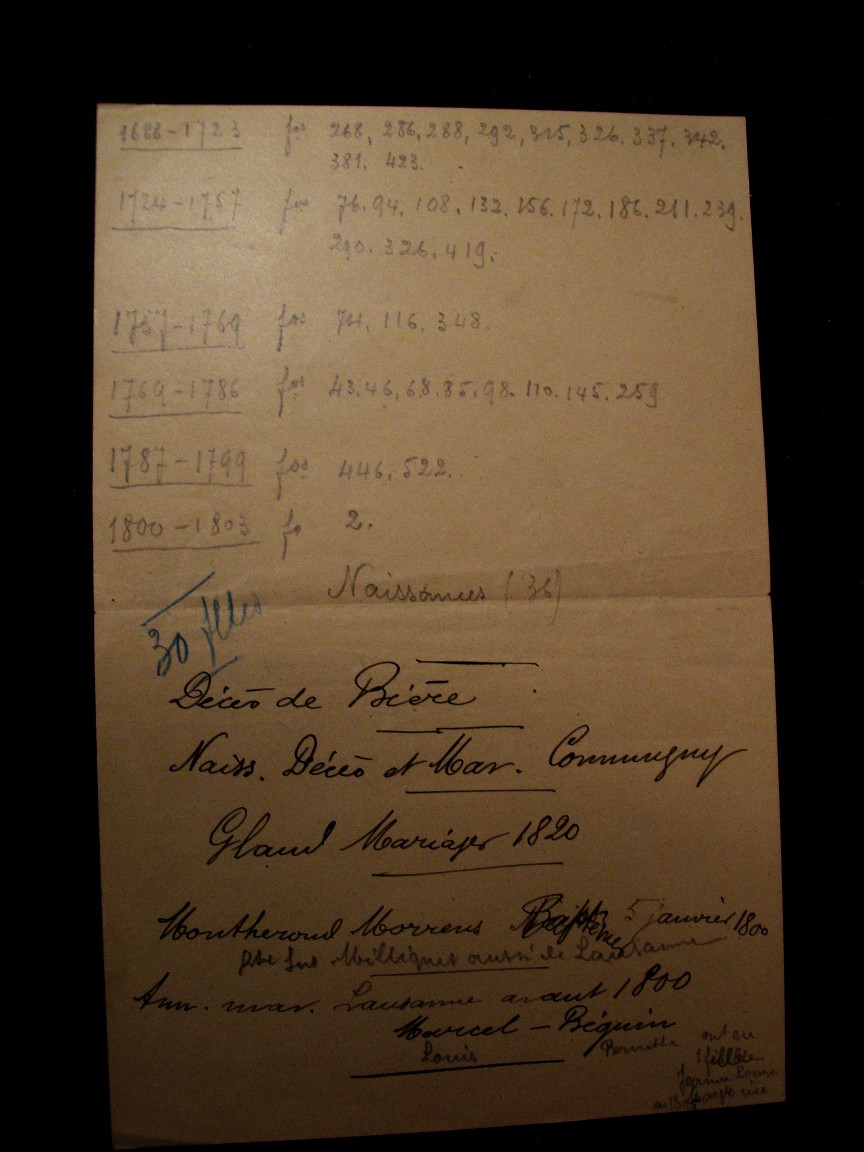 1688-1723 fos 268, 286, 288, 292, 315, 326. 337. 342.
381. 423.
1724-1757 fos 76. 94. 108. 132. 156. 172. 186. 211. 239.
290. 326. 419.
1757-1769 fos 74. 116. 348.
1769-1786 fos 43. 46, 68. 85. 98. 110. 145. 259
1787-1799 fos 446, 522.
1800-1803 fo 2.
Naissances (36)
30 flles
Décès de Bière
Naiss. Décès et Mar. Commugny
Gland Mariages 1820
Montheround Morrens Baptêmes 5 janvier 1800
Milliquet aussi de Lausanne
Ann. mar. Lausanne avant 1800
Marcel - Béguin
Louis Pernette ont eu
1 fille
Jeanne Louise